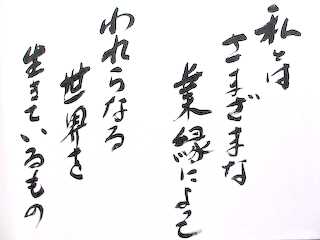 私とは
さまざまな
業縁によって
われらなる
世界を
生きているもの